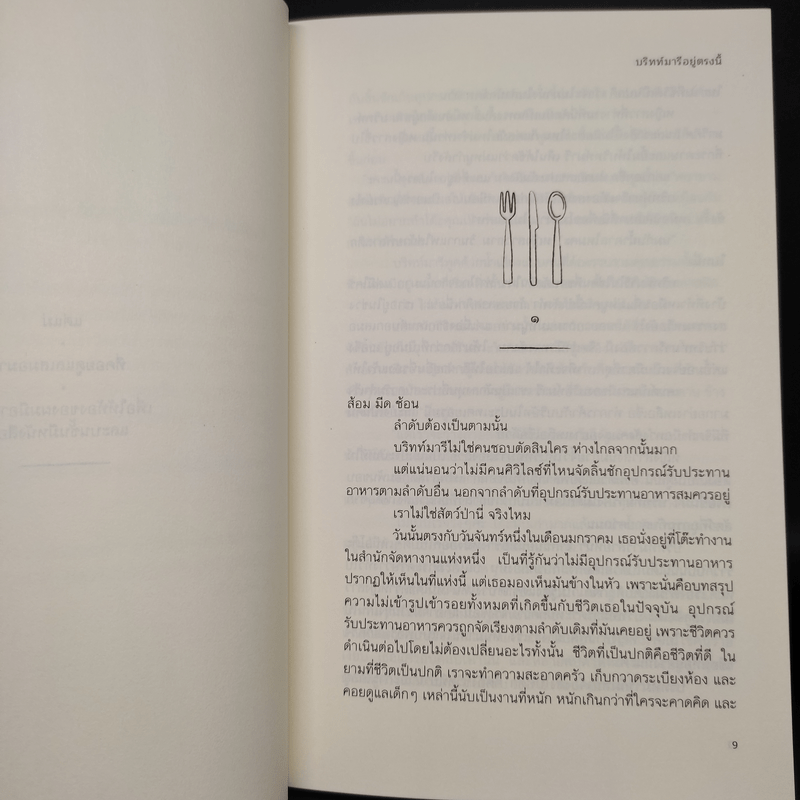 บริทท์มารีอยู่ตรงนี้
๑
ส้อม มีด ช้อน
ลำดับต้องเป็นตามนั้น
บริทท์มารีไม่ใช่คนชอบตัดสินใคร ห่างไกลจากนั้นมาก
แต่แน่นอนว่าไม่มีคนศิวิไลซ์ที่ไหนจัดลิ้นชักอุปกรณ์รับประทาน
อาหารตามลำดับอื่น นอกจากลำดับที่อุปกรณ์รับประทานอาหารสมควรอยู่
เราไม่ใช่สัตว์ป่านี่ จริงไหม
วันนั้นตรงกับวันจันทร์หนึ่งในเดือนมกราคม เธอนั่งอยู่ที่โต๊ะทำงาน
ในสำนักจัดหางานแห่งหนึ่ง เป็นที่รู้กันว่าไม่มีอุปกรณ์รับประทานอาหาร
ปรากฏให้เห็นในที่แห่งนี้ แต่เธอมองเห็นมันข้างในหัว เพราะนั่นคือบทสรุป
ความไม่เข้ารูปเข้ารอยทั้งหมดที่เกิดขึ้นกับชีวิตเธอในปัจจุบัน อุปกรณ์
รับประทานอาหารควรถูกจัดเรียงตามลำดับเดิมที่มันเคยอยู่ เพราะชีวิตควร
ดำเนินต่อไปโดยไม่ต้องเปลี่ยนอะไรทั้งนั้น ชีวิตที่เป็นปกติคือชีวิตที่ดี ใน
ยามที่ชีวิตเป็นปกติ เราจะทำความสะอาดครัว เก็บกวาดระเบียงห้อง และ
คอยดูแลเด็กๆ เหล่านี้นับเป็นงานที่หนัก หนักเกินกว่าที่ใครจะคาดคิด และ
9